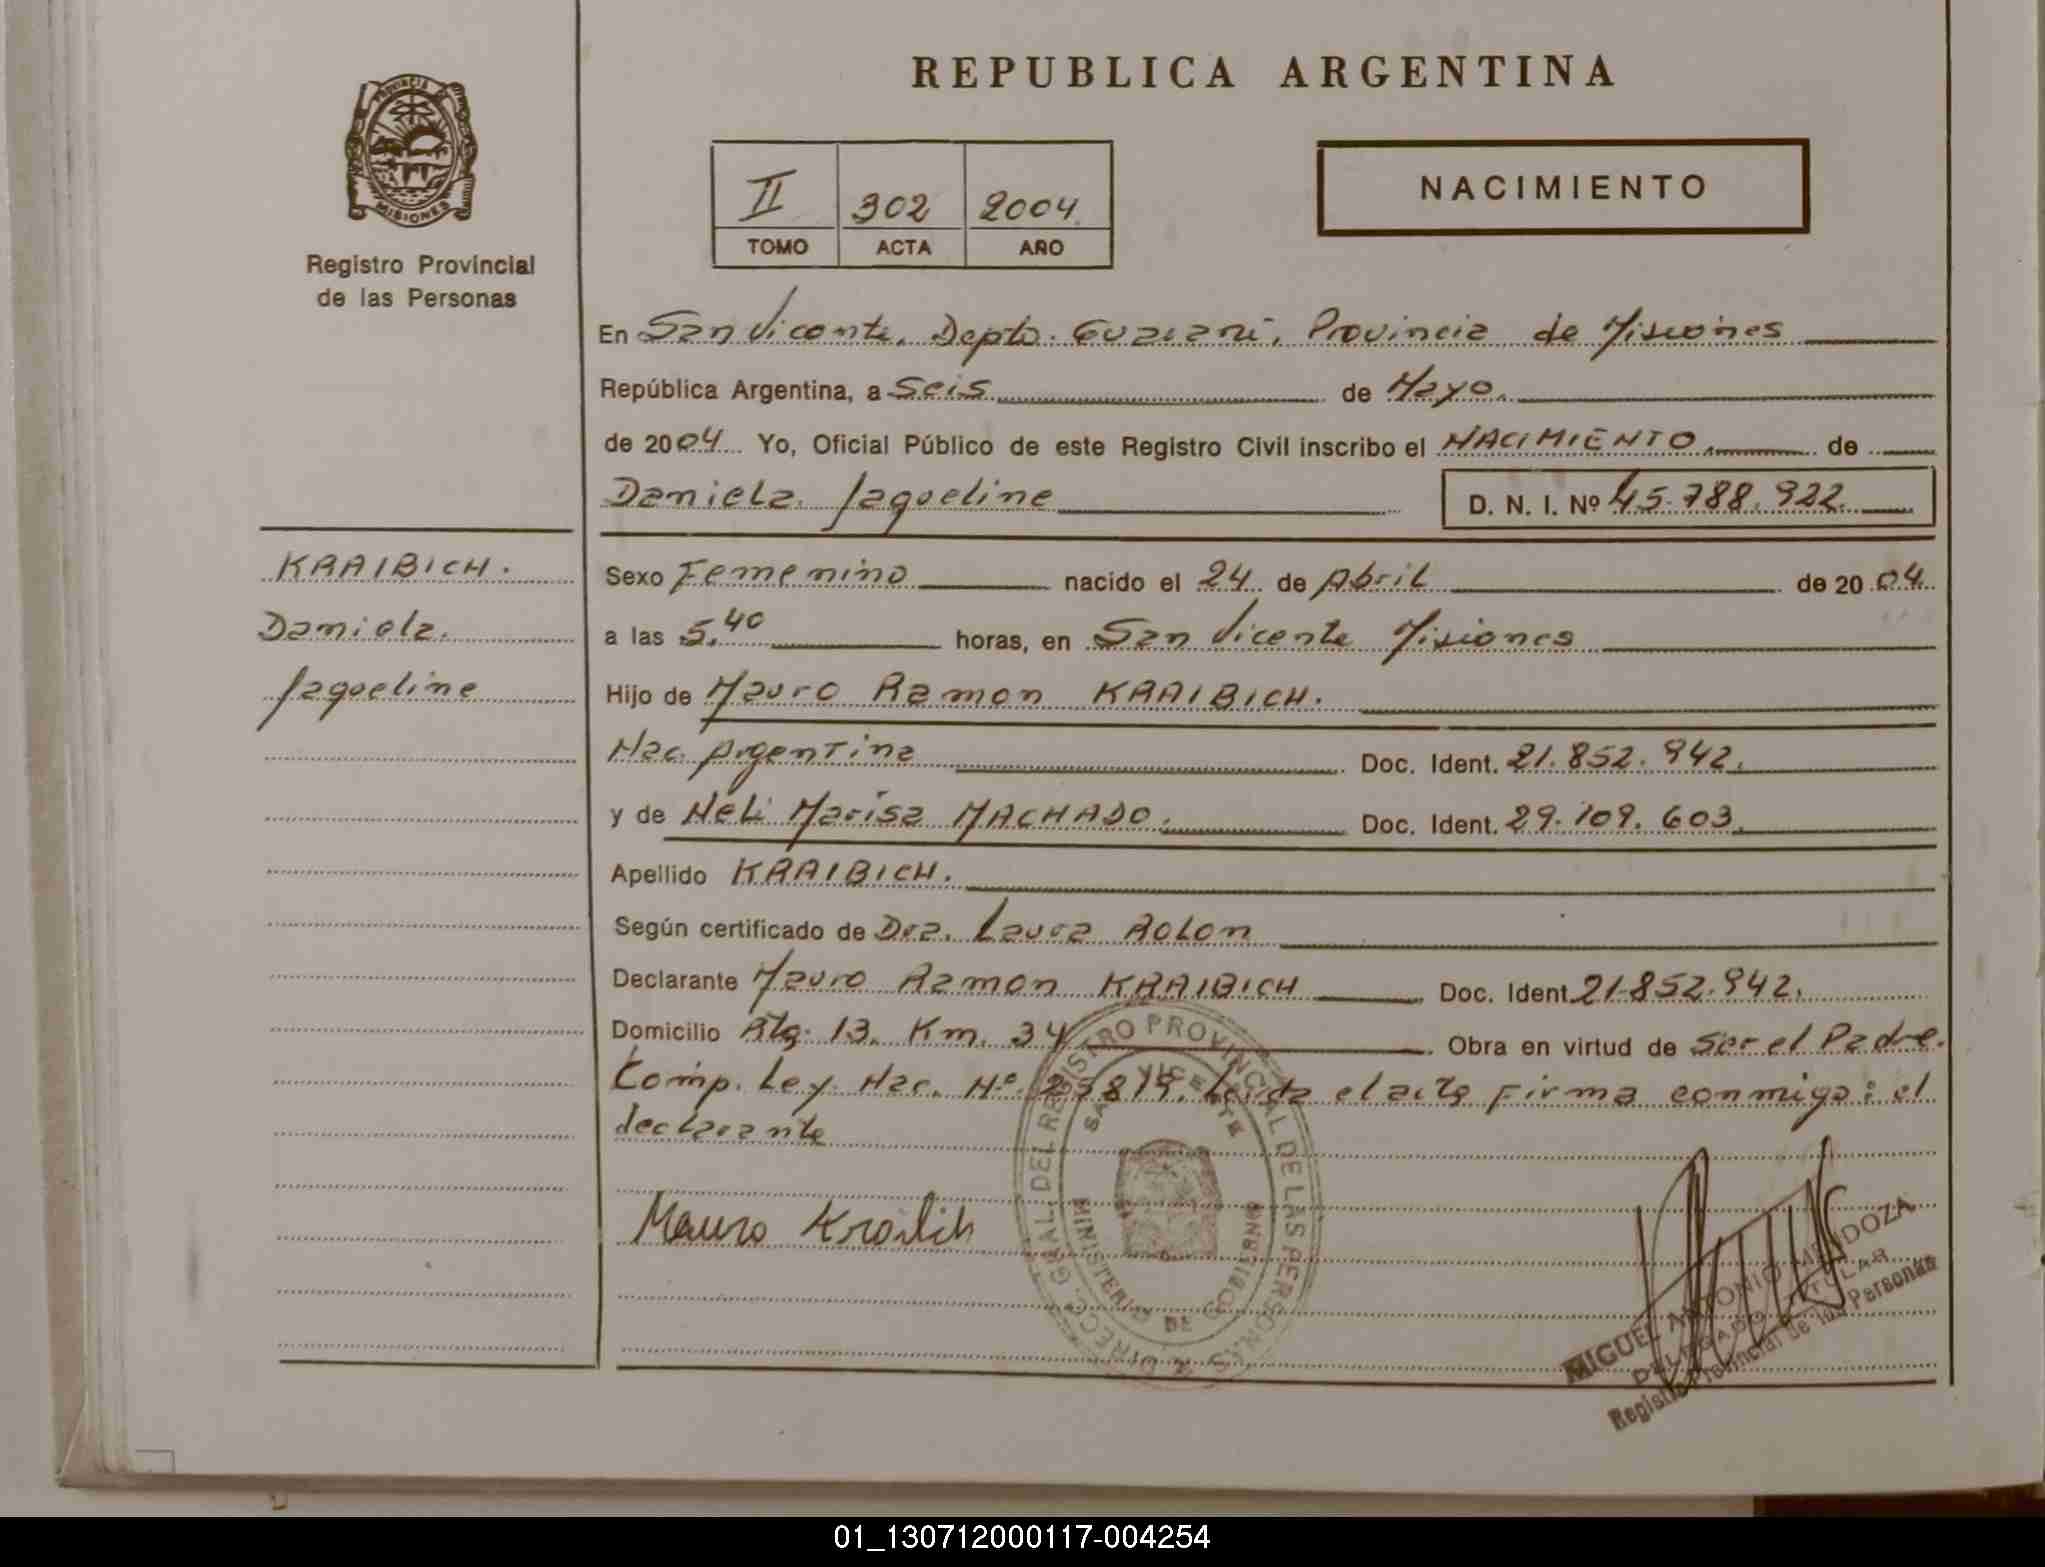 REPUBLICA ARGENTINA
PROVINCIA DE MISIONES
Registro Provincial
de las Personas
II 302 2004
TOMO ACTA AÑO
NACIMIENTO
En San Vicente, Depto. Guaraní, Provincia de Misiones
República Argentina, a Seis de Mayo.
de 2004 Yo, Oficial Público de este Registro Civil inscribo el NACIMIENTO de
Daniela Jaqueline D. N. I. Nº 45.788.922.
KRAIBICH.
Daniela
Jaqueline
Sexo Femenino nacido el 24 de Abril de 2004
a las 5,40 horas, en San Vicente Misiones
Hijo de Mauro Ramon KRAIBICH.
Nac. Argentina Doc. Ident. 21.852.942.
y de Neli Marisa MACHADO. Doc. Ident. 29.109.603.
Apellido KRAIBICH.
Según certificado de Dra. Laura ROLON
Declarante Mauro Ramon KRAIBICH Doc. Ident 21.852.942.
Domicilio Rta. 13. Km. 34 Obra en virtud de Ser el Padre.
Comp. Ley. Nac. Nº 25819. Leida el acta Firma conmigo: el
declarante
Mauro Kraibich
DIRECC. GRAL. DEL REGISTRO PROVINCIAL DE LAS PERSONAS
SAN VICENTE
MINISTERIO DE GOBIERNO
MIGUEL ANTONIO MENDOZA
DELEGADO TITULAR
Registro Provincial de las Personas
01_130712000117-004254